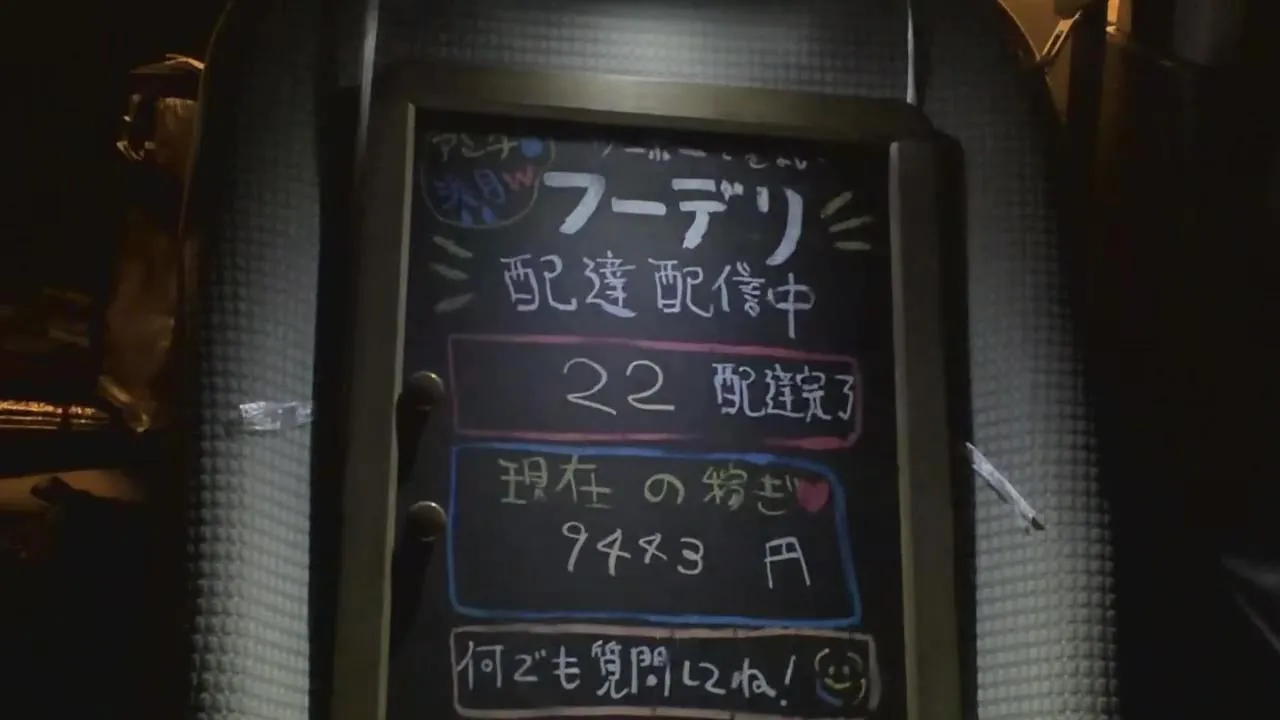 アンチ
フーデリ
配達配信中
22 配達完了
現在の稼ぎ
9483 円
何でも質問してね!